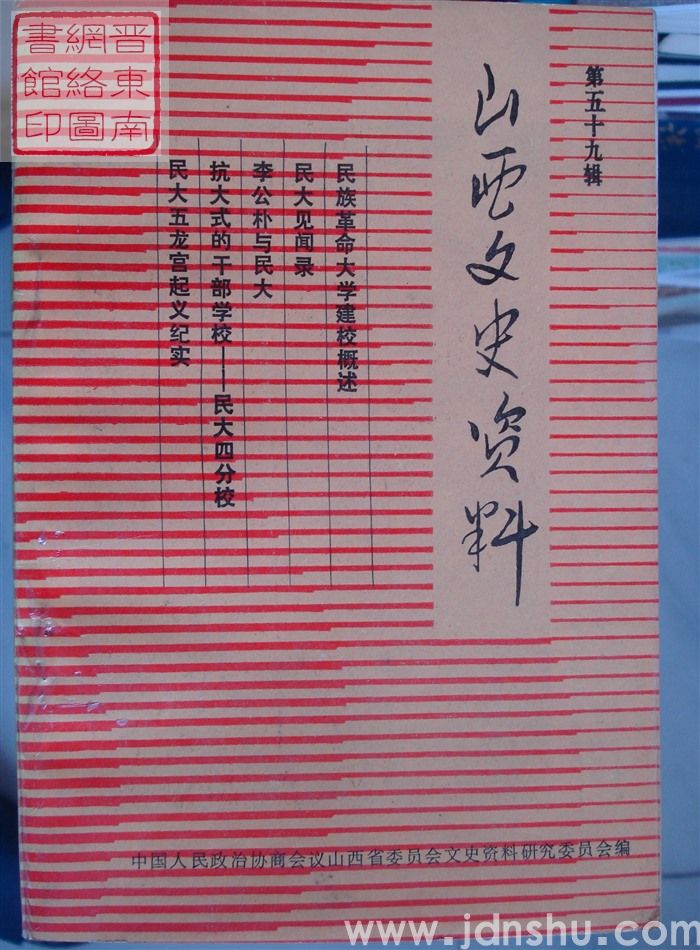 第五十九辑
山西文史资料
民族革命大学建校概述
民大见闻录
李公朴与民大
抗大式的干部学校——民大四分校
民大五龙宫起义纪实
中国人民政治协商会议山西省委员会文史资料研究委员会编
晋東南
網絡圖
書館印
www.jdnshu.com